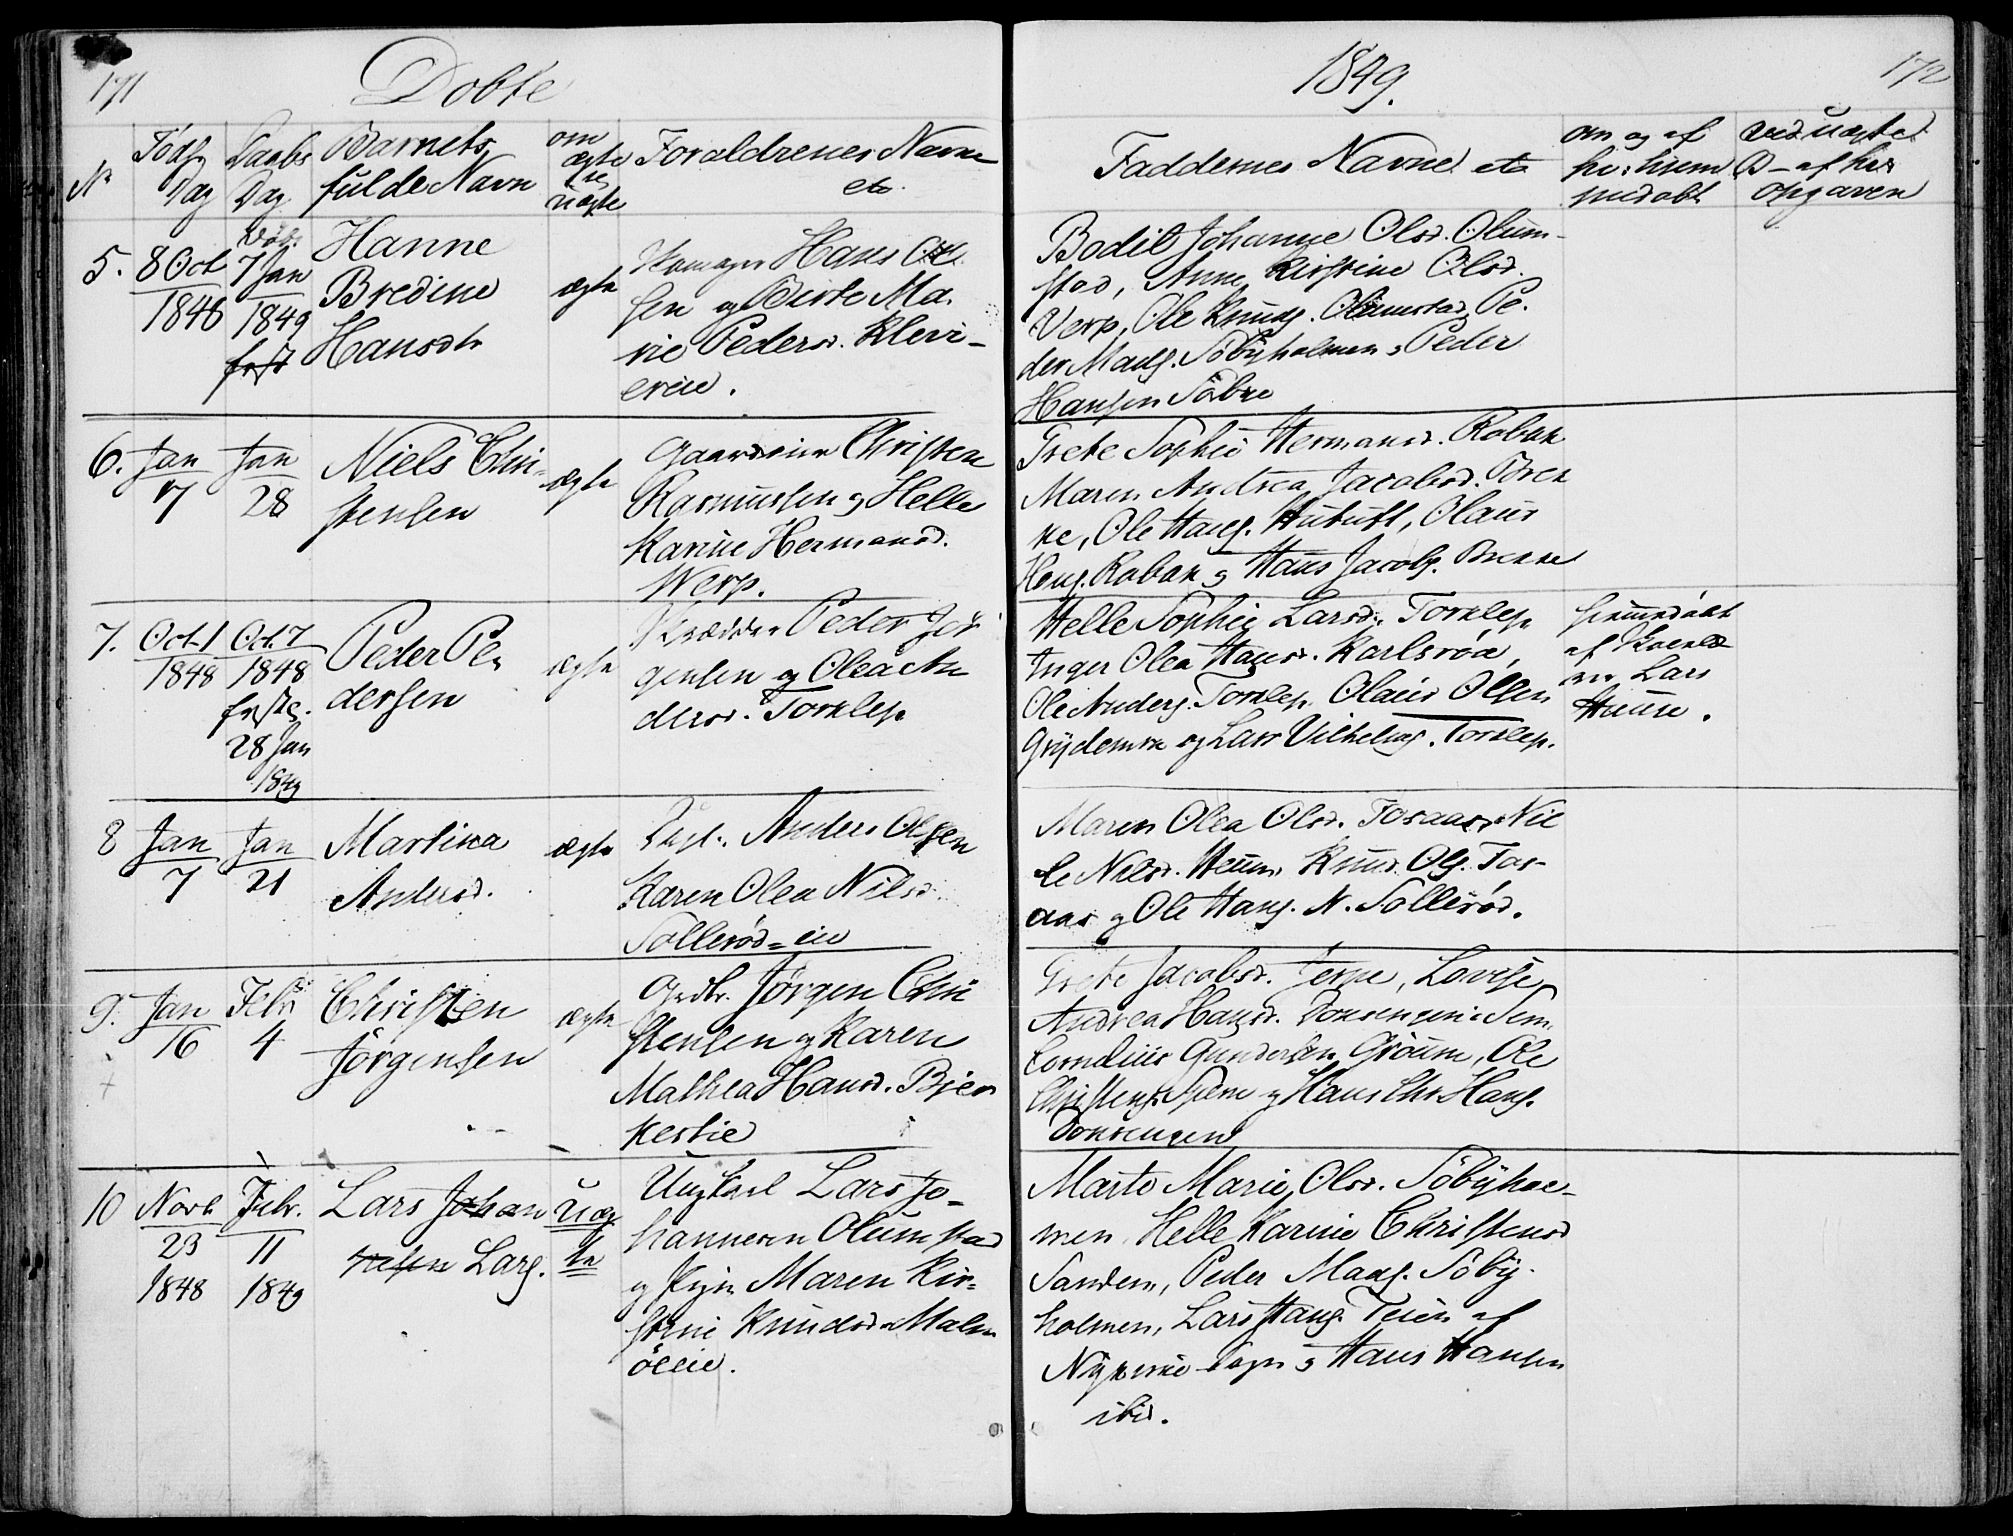 171
Döbte
1849.
172
N.
Föds
Dag
Daabs
Dag
Barnets
fulde Navn
om
ægte
el.
uægte
Foraldrenes Navne
etc.
Faddernes Navne etc
om og af
hvem
hjemdøbt
ved uægte
opgaven
5.
8 Oct
1848
Döbt
7 Jan
1849
Hanne
Bredine
Hansdtr
ægte
Skomager Hans Ol
sen og Birte Ma-
rie Pedersd. Klevi-
ereie.
Bodil Johanne Olsd. Olum-
stad, Anne Kirstine Olsd.
Verp, Ole Knuds. Olumstad, Pe-
der Mads. Söbyholmen, Peder
Hansen Söbye
6.
Jan
17
Jan
28
Niels Chri-
stensen
ægte
Gaardeier Christen
Rasmussen og Helle
Karine Hermansd.
Werp.
Grete Sophie Hermansd. Robak
Maren Andrea Jacobsd. Brek
ke, Ole Hans. Olaus
Hans. Robak og Hans Jacobs. Brekke
7.
Oct. 1
1848
Oct. 7
1848
frstg.
28 Jan
1849
Peder Pe
dersen
ægte
Skrædder Peder Jør
gensen og Olea An
dersd. Torklep
Helle Sophie Larsd. Torklep
Inger Olea Hansd. Karlsröd,
Ole Anders. Torklep, Olaus Olsen
Grydemon og Lars Vilhelms. Torklep.
hjemmedöbt
af Skolelæ
rer Lars
8
Jan
7
Jan
21
Martina
Andersd.
ægte
Anders Olsen
Karen Olea Nilsd.
Solleröd-eie
Maren Olea Olsd. Fosaas, Nil
le Nilsd. Heum, Knud Ols. Fos-
aas og Ole Hans. N. Solleröd.
9.
Jan
16
Febr
4
Christen
Jörgensen
ægte
Grdbr. Jörgen Chri
stensen og Karen
Mathea Hansd. Bjer
keslie
Grete Jacobsd. Jerpe, Lovise
Andrea Hansd. Sem
Cornelius Gundersen Gröum, Ole
Christens. Sem og Hans Chr. Hans.
10
Novb
23
1848
Febr.
11
1849
Lars Johan
Lars.
Uæg
te
Ungkarl Lars Jo-
hannesen Olumstad
og Pigen Maren Kir-
stine Knudsd Malm
öeie.
Marte Marie Olsd. Söbyhol-
men, Helle Karine Christensd
Sanden, Peder Mads. Söby-
holmen, Lars Hans. Teien af
Nykirke Sogn og Hans Hansen
ibid.